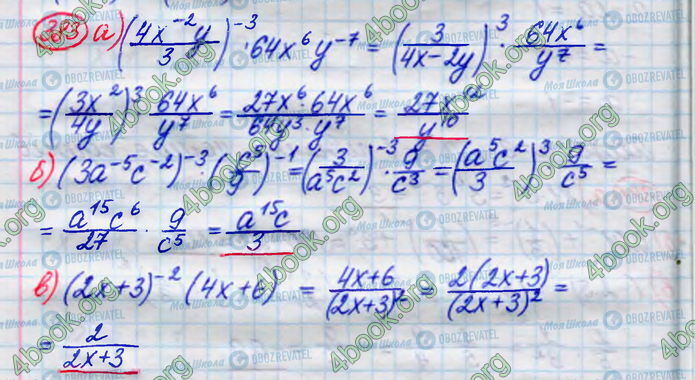 383 а) (4x⁻²y/3)⁻³ · 64x⁶y⁻⁷ = (3/4x-2y)³ · 64x⁶/y⁷ =
= (3x²/4y)³ · 64x⁶/y⁷ = 27x⁶·64x⁶/64y³·y⁷ = 27x¹²/y¹⁰
б) (3a⁻⁵c⁻²)⁻³ · (c⁵/9)⁻¹ = (3/a⁵c²)⁻³ · 9/c³ = (a⁵c²/3)³ 9/c⁵ =
= a¹⁵c⁶/27 · 9/c⁵ = a¹⁵c/3
в) (2x+3)⁻² (4x+6) = 4x+6/(2x+3)² = 2(2x+3)/(2x+3)² =
= 2/2x+3